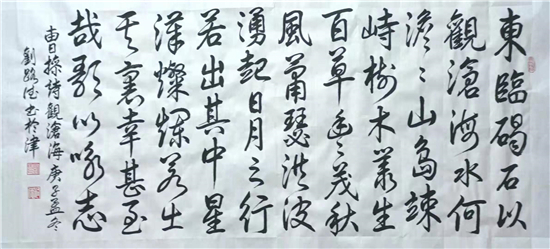 東臨碣石以
觀滄海水何
澹々山島竦
峙樹木叢生
百草豐茂秋
風蕭瑟洪波
湧起日月之行
若出其中星
漢燦爛若出
其裏幸甚至
哉歌以詠志
曹操詩觀滄海庚子孟冬
劉路书於津